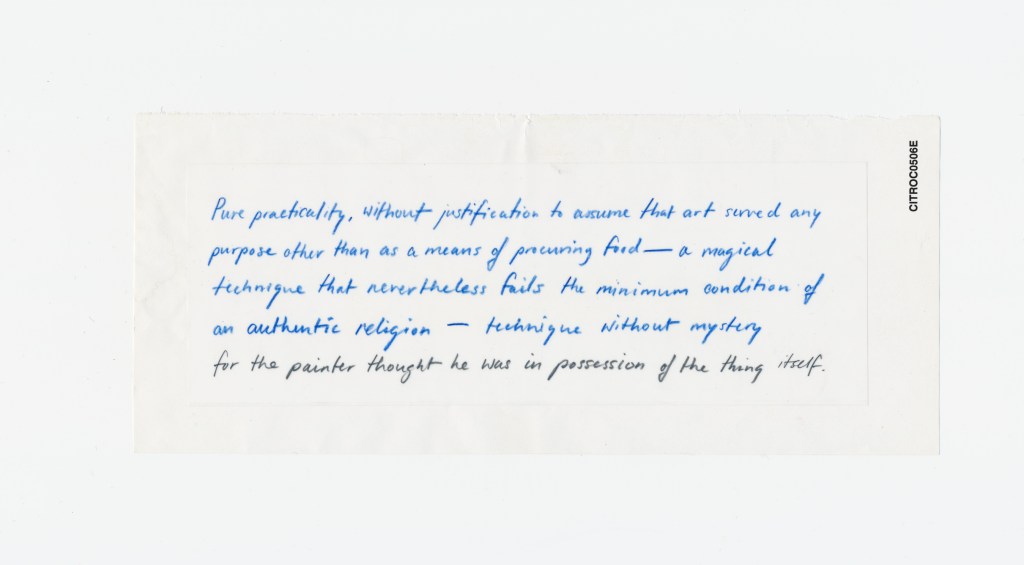 Pure practicality, without justification to assume that art served any
purpose other than as a means of procuring food — a magical
technique that nevertheless fails the minimum condition of
an authentic religion — technique without mystery
for the painter thought he was in possession of the thing itself.
CITROC0506E